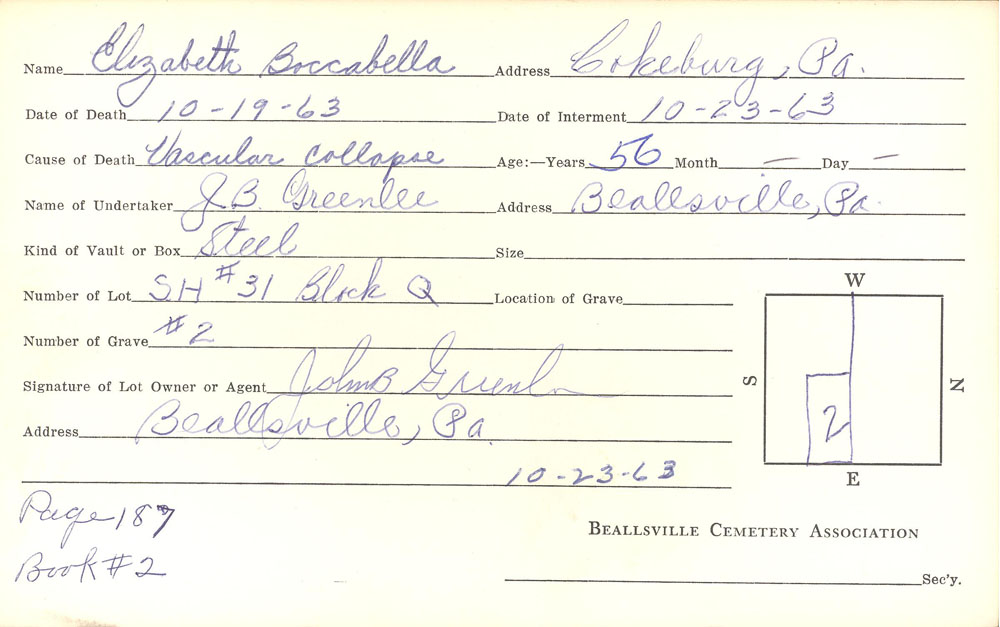 Name Elizabeth Boccabella Address Cokeburg, Pa.
Date of Death 10-19-63 Date of Interment 10-23-63
Cause of Death Vascular collapse Age:—Years 56 Month — Day —
Name of Undertaker J.B. Greenlee Address Beallsville, Pa.
Kind of Vault or Box Steel Size
Number of Lot SH #31 Block Q Location of Grave
Number of Grave #2
Signature of Lot Owner or Agent John B Greenlee
Address Beallsville, Pa.
10-23-63
W
S
N
2
E
Page 187
Book #2
BEALLSVILLE CEMETERY ASSOCIATION
Sec'y.